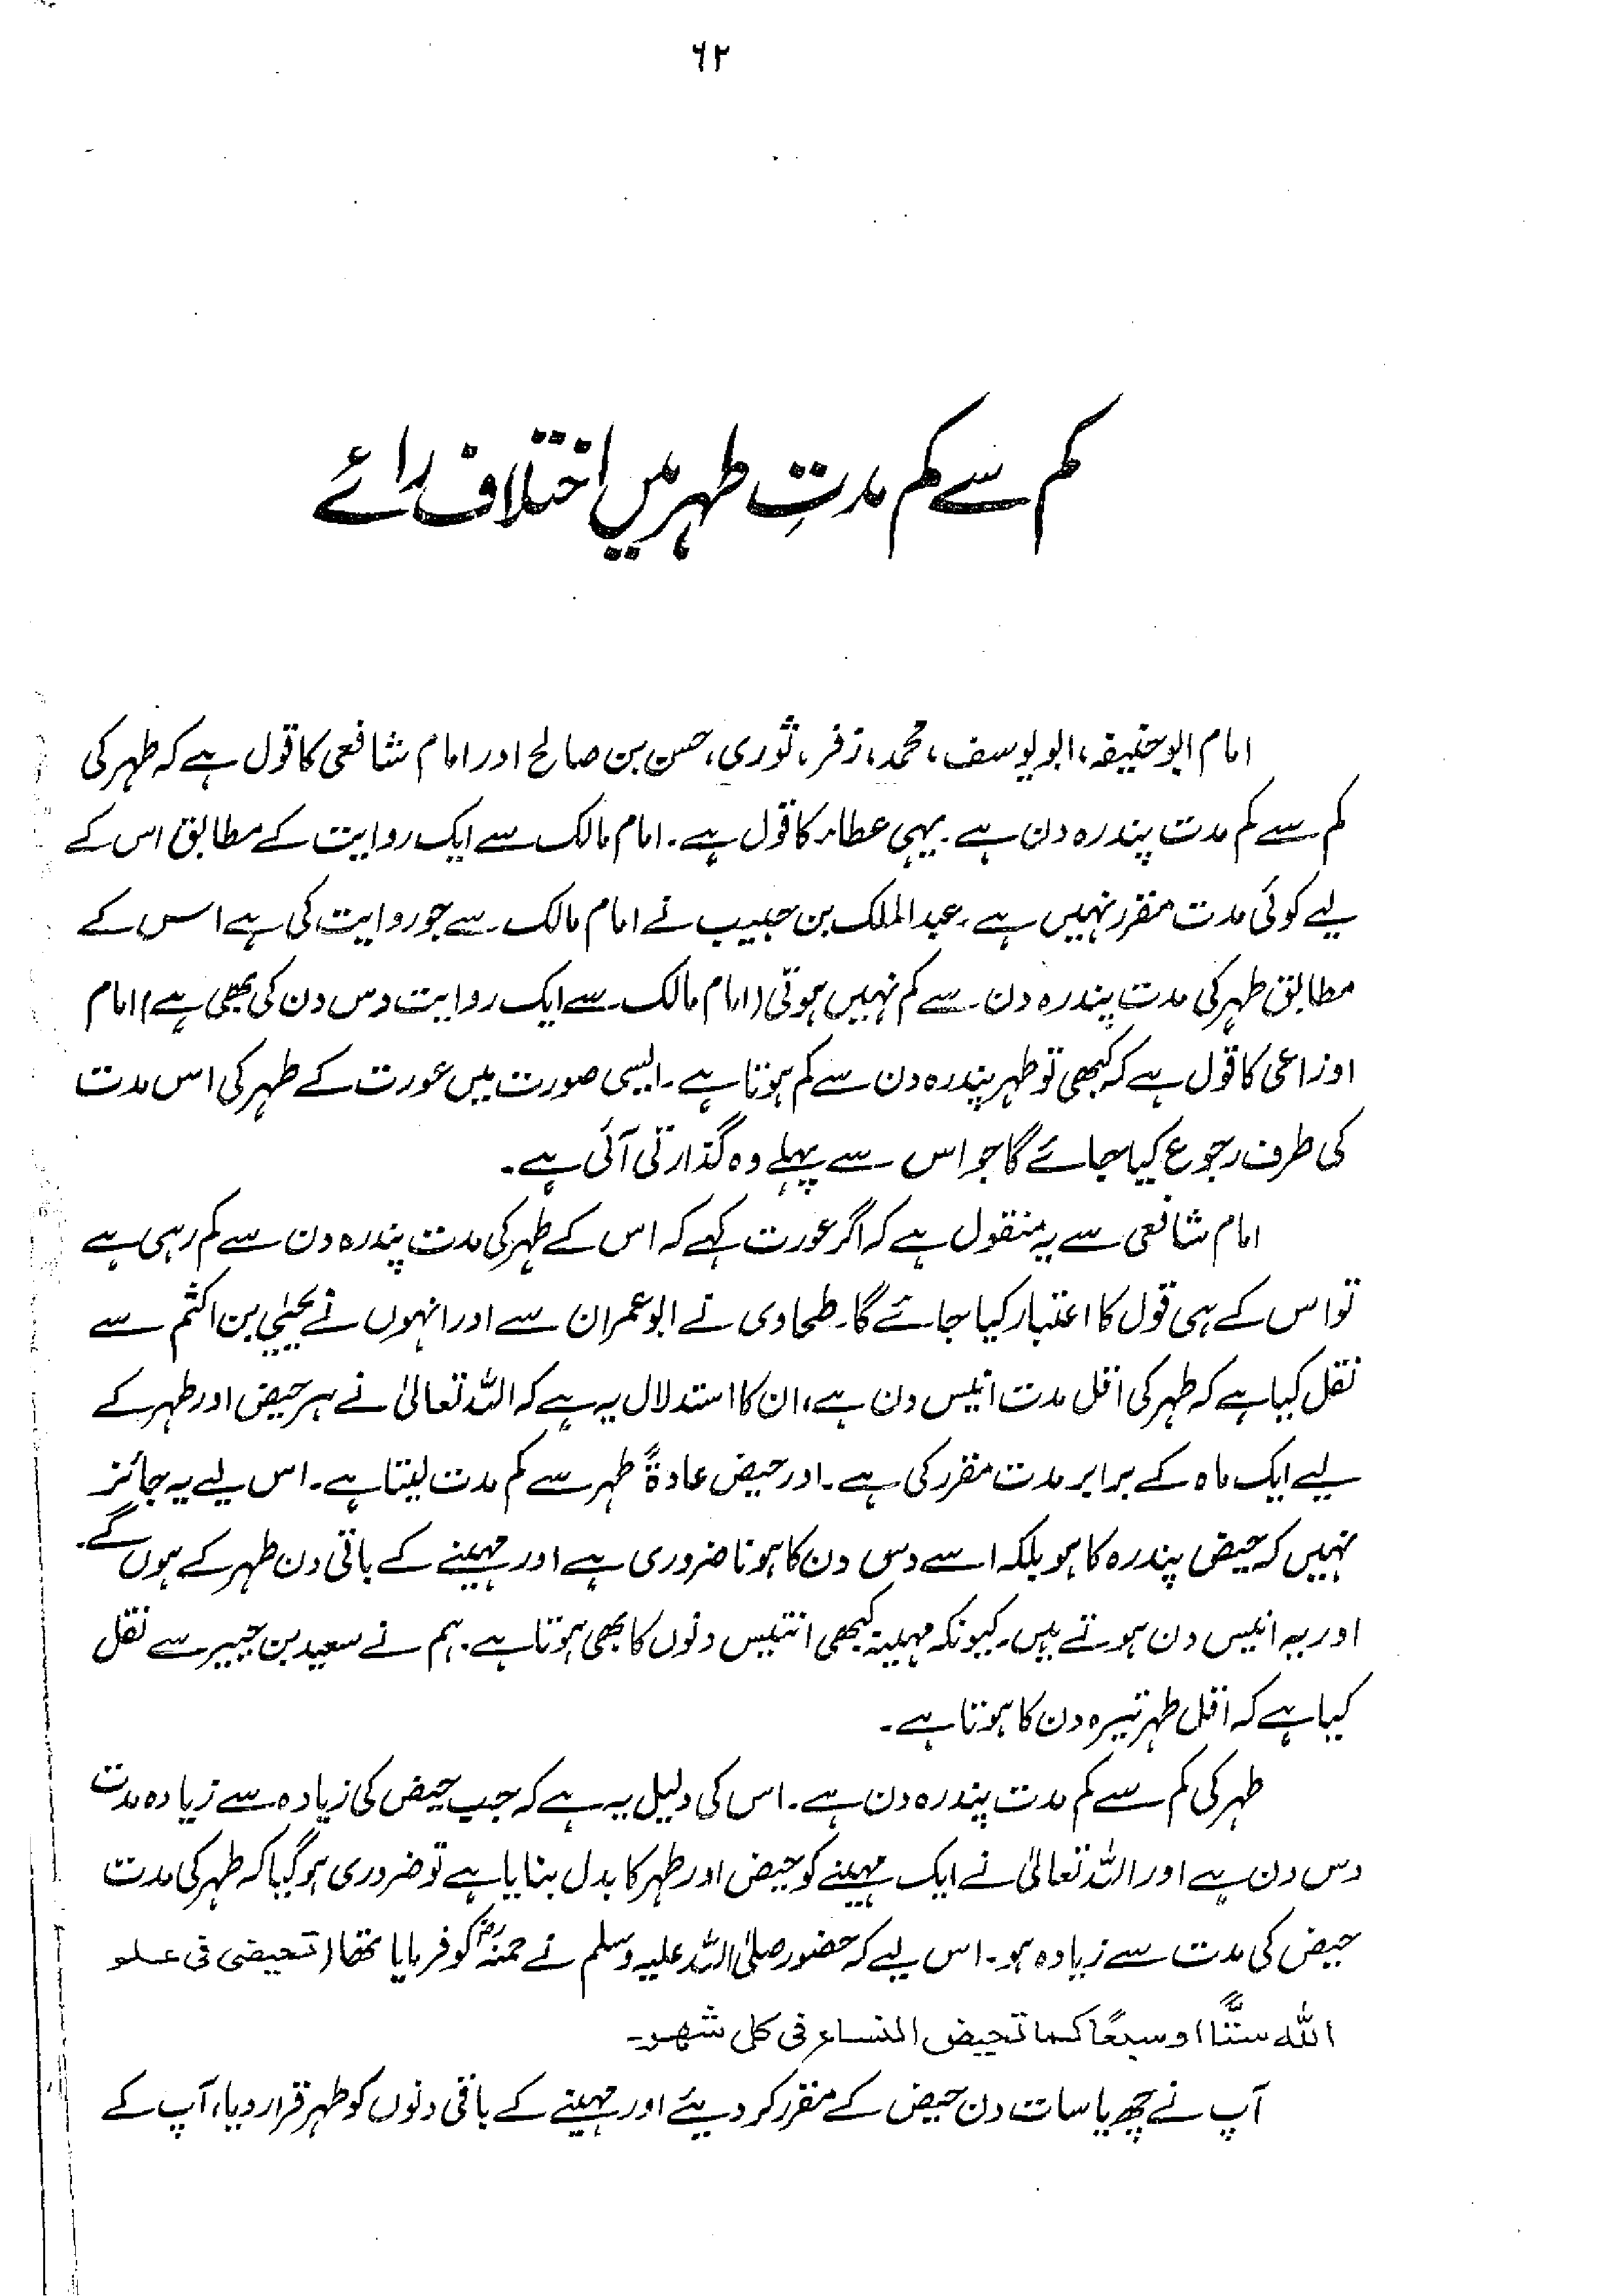 ۶۲
کم سے کم مدتِ طہر میں اختلاف رائے
امام ابوحنیفہ، ابویوسف، محمد، زفر، ثوری، حسن بن صالح اور امام شافعی کا قول ہے کہ طہر کی
کم سے کم مدت پندرہ دن ہے۔ یہی عطاء کا قول ہے۔ امام مالک سے ایک روایت کے مطابق اس کے
لیے کوئی مدت مقرر نہیں ہے، عبدالملک بن حبیب نے امام مالک سے جو روایت کی ہے اس کے
مطابق طہر کی مدت پندرہ دن سے کم نہیں ہوتی (امام مالک سے ایک روایت دس دن کی بھی ہے) امام
اوزاعی کا قول ہے کہ کبھی تو طہر پندرہ دن سے کم ہوتا ہے۔ ایسی صورت میں عورت کے طہر کی اس مدت
کی طرف رجوع کیا جائے گا جو اس سے پہلے وہ گذارتی آئی ہے۔
امام شافعی سے یہ منقول ہے کہ اگر عورت کہے کہ اس کے طہر کی مدت پندرہ دن سے کم رہی ہے
تو اس کے ہی قول کا اعتبار کیا جائے گا۔ طحاوی نے ابوعمران سے اور انہوں نے یحییٰ بن اکثم سے
نقل کیا ہے کہ طہر کی اقل مدت انیس دن ہے، ان کا استدلال یہ ہے کہ اللہ تعالیٰ نے ہر حیض اور طہر کے
لیے ایک ماہ کے برابر مدت مقرر کی ہے۔ اور حیض عادۃً طہر سے کم مدت لیتا ہے۔ اس لیے یہ جائز
نہیں کہ حیض پندرہ کا ہو بلکہ اسے دس دن کا ہونا ضروری ہے اور مہینے کے باقی دن طہر کے ہوں گے۔
اور یہ انیس دن ہوتے ہیں۔ کیونکہ مہینہ کبھی انتیس دنوں کا بھی ہوتا ہے۔ ہم نے سعید بن جبیر سے نقل
کیا ہے کہ اقل طہر تیرہ دن کا ہوتا ہے۔
طہر کی کم سے کم مدت پندرہ دن ہے۔ اس کی دلیل یہ ہے کہ جب حیض کی زیادہ سے زیادہ مدت
دس دن ہے اور اللہ تعالیٰ نے ایک مہینے کو حیض اور طہر کا بدل بنایا ہے تو ضروری ہو گیا کہ طہر کی مدت
حیض کی مدت سے زیادہ ہو۔ اس لیے کہ حضور صلی اللہ علیہ وسلم نے حمنہؓ کو فرمایا تھا (تحیضی فی علو
اللہ ستًّا او سبعًا کما تحیض النساء فی کل شھر۔
آپ نے چھ یا سات دن حیض کے مقرر کر دیئے اور مہینے کے باقی دنوں کو طہر قرار دیا، آپ کے